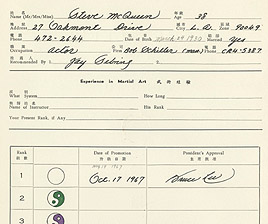 姓名 Name (Mr/Mrs/Miss) Steve McQueen 年齡 Age 38
Address 27 Oakmont Drive City L.A. 90049
Phone 472-2644 Date of Birth March 24 1930 Married Yes
Occupation actor Firm Bob Schiller Phone CR4-5387
Recommended By Jay Sebring
Experience in Martial Art 武術經驗
What System How Long
Name of Instructor His Rank
Your Present Rank, if Any
Rank Date of Promotion President's Approval
1 Oct. 17 1967 Bruce Lee
2
3